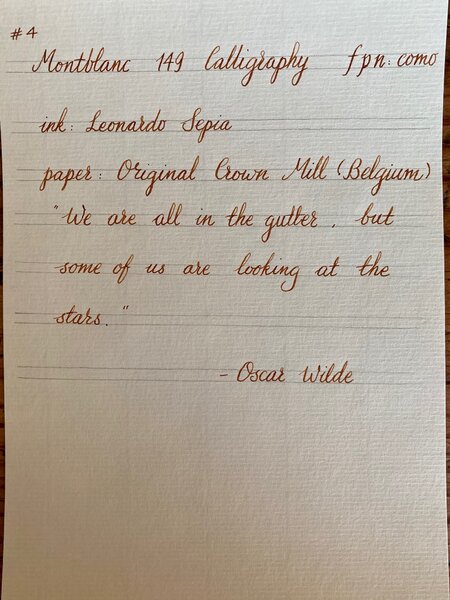 #4
Montblanc 149 Calligraphy fpn: como
ink: Leonardo Sepia
paper: Original Crown Mill (Belgium)
"We are all in the gutter, but
some of us are looking at the
stars."
- Oscar Wilde